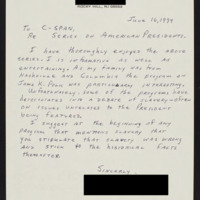 ROCKY HILL, NJ 08553
June 16, 1999
To C-SPAN,
Re Series on American Presidents.
I have thoroughly enjoyed the above
series. It is informative as well as
entertaining. As my family was from
Nashville and Columbia the program on
James K. Polk was particularly interesting.
Unfortunately, some of the programs have
deteriorated into a debate of slavery rather
on issues germane to the President
being featured.
I suggest at the beginning of any
program that mentions slavery that
you stipulate that slavery was wrong
and stick to the historical facts
thereafter.
Sincerely,